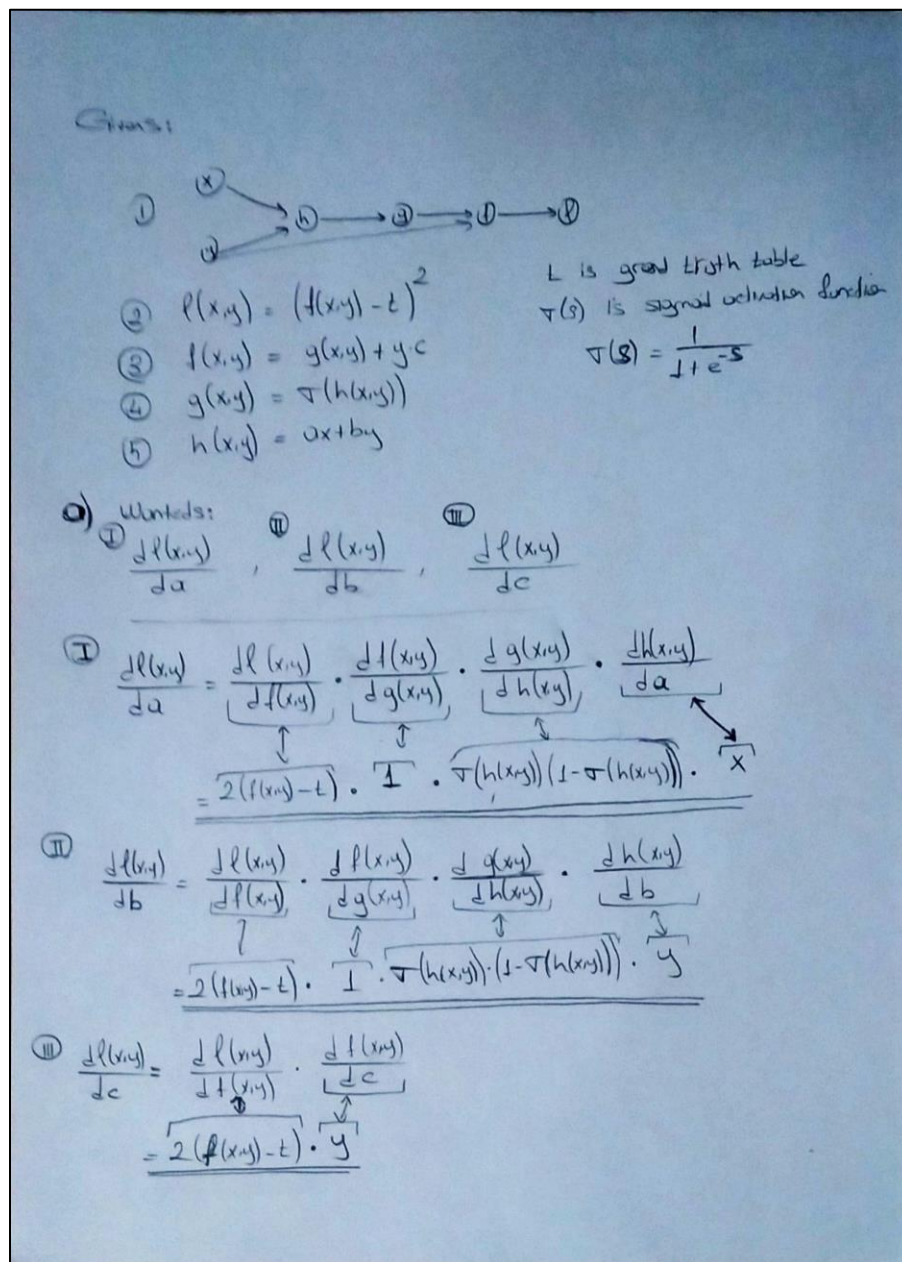 Givens:
① x y h g f l
② l(x,y) = (f(x,y) - t)²
③ f(x,y) = g(x,y) + y.c
④ g(x,y) = σ(h(x,y))
⑤ h(x,y) = ax+by
t is grand truth table
σ(s) is sigmoid activation function
σ(s) = 1 / (1 + e^-s)
a) Wanteds:
Ⅰ dl(x,y)/da , Ⅱ dl(x,y)/db , Ⅲ dl(x,y)/dc
Ⅰ dl(x,y)/da = dl(x,y)/df(x,y) · df(x,y)/dg(x,y) · dg(x,y)/dh(x,y) · dh(x,y)/da
= 2(f(x,y) - t) · 1 · σ(h(x,y))(1 - σ(h(x,y))) · x
Ⅱ dl(x,y)/db = dl(x,y)/df(x,y) · df(x,y)/dg(x,y) · dg(x,y)/dh(x,y) · dh(x,y)/db
= 2(f(x,y) - t) · 1 · σ(h(x,y)) · (1 - σ(h(x,y))) · y
Ⅲ dl(x,y)/dc = dl(x,y)/df(x,y) · df(x,y)/dc
= 2(f(x,y) - t) · y